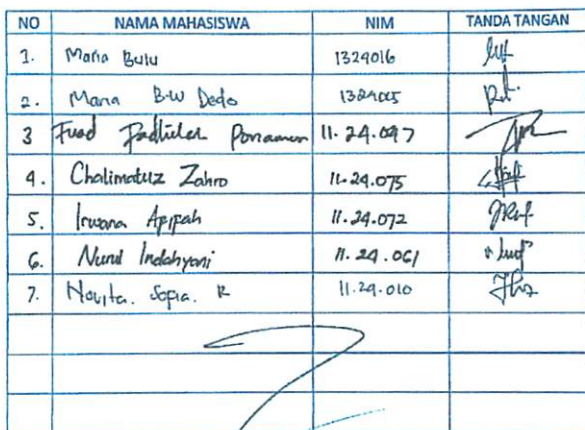 NO NAMA MAHASISWA NIM TANDA TANGAN
1. Maria Bulu 1324016
2. Maria B.W Dedo 1324005
3 Fuad 11.24.097
4. Chalimatuz Zahro 11.24.075
5. Irwana Apipah 11.24.072
6. Nurul Indahyani 11.24.061
7. Novita. Sopia. R 11.24.010